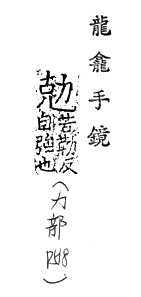 龍龕手鏡
勊
苦勒反
自強也
(力部
P518)